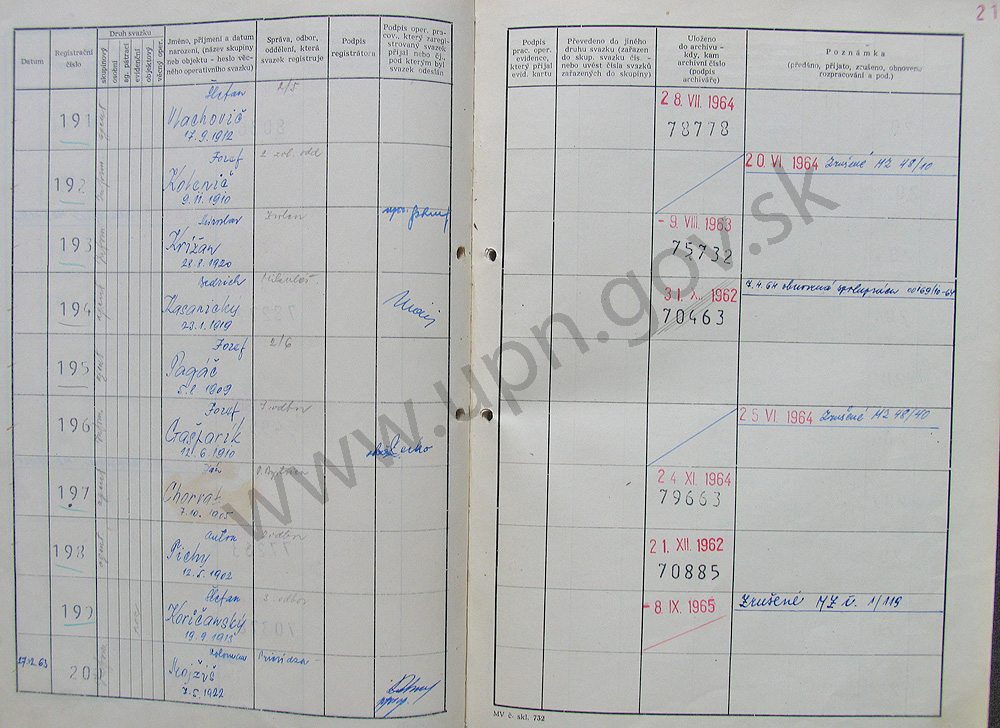 21
Datum
Registrační číslo
Druh svazku
skupinový
osobní
ag. pátrací
evidenční
objektový
věcný oper.
Jméno, příjmení a datum
narození, (název skupiny
neb objektu - heslo věc-
ného operativního svazku)
Správa, odbor,
oddělení, která
svazek registruje
Podpis
registrátora
Podpis oper. pra-
cov., který zareg-
istrovaný svazek
přijal nebo čj.,
pod kterým byl
svazek odeslán
Podpis
prac. oper.
evidence,
který přijal
evid. kartu
Převedeno do jiného
druhu svazku (zařazen
do skup. svazku čís. -
nebo uvést čísla svazků
zařazených do skupiny)
Uloženo
do archivu -
kdy, kam
archivní číslo
(podpis
archiváře)
Poznámka
(předáno, přijato, zrušeno, obnoveno
rozpracování a pod.)
191 agent Štefan 2/5
Vlachovič
17.9.1912
28. VII. 1964
78778
192 inform Jozef
9.11.1910
20 VI 1964 Zrušené MZ 48/10
193 inform Miroslav Zvolen
Križan
28.8.1920
- 9. VIII. 1963
75732
194 agent Bedrich
Kasanický
23.1.1919
31. X. 1962
70463
7.4.64 obnovená spolupráca
195 agent Jozef 2/6
Pagáč
1909
196 inform Jozef odbor
Gašparík
12.6.1910
25 VI. 1964 Zrušené MZ 48/40
197 agent Ján
Chorvat
7.10.1905
24 XI. 1964
79663
198 agent Anton odbor
Pichy
12.5.1902
21. XII. 1962
70885
199 Štefan 3. odbor
Koričanský
19.9.1915
- 8 IX. 1965
Zrušené MZ č. 1/119
27.12.63 20 Koloman Prievidza
Mojžiš
7.5.1922
MV č. skl. 732
www.upn.gov.sk